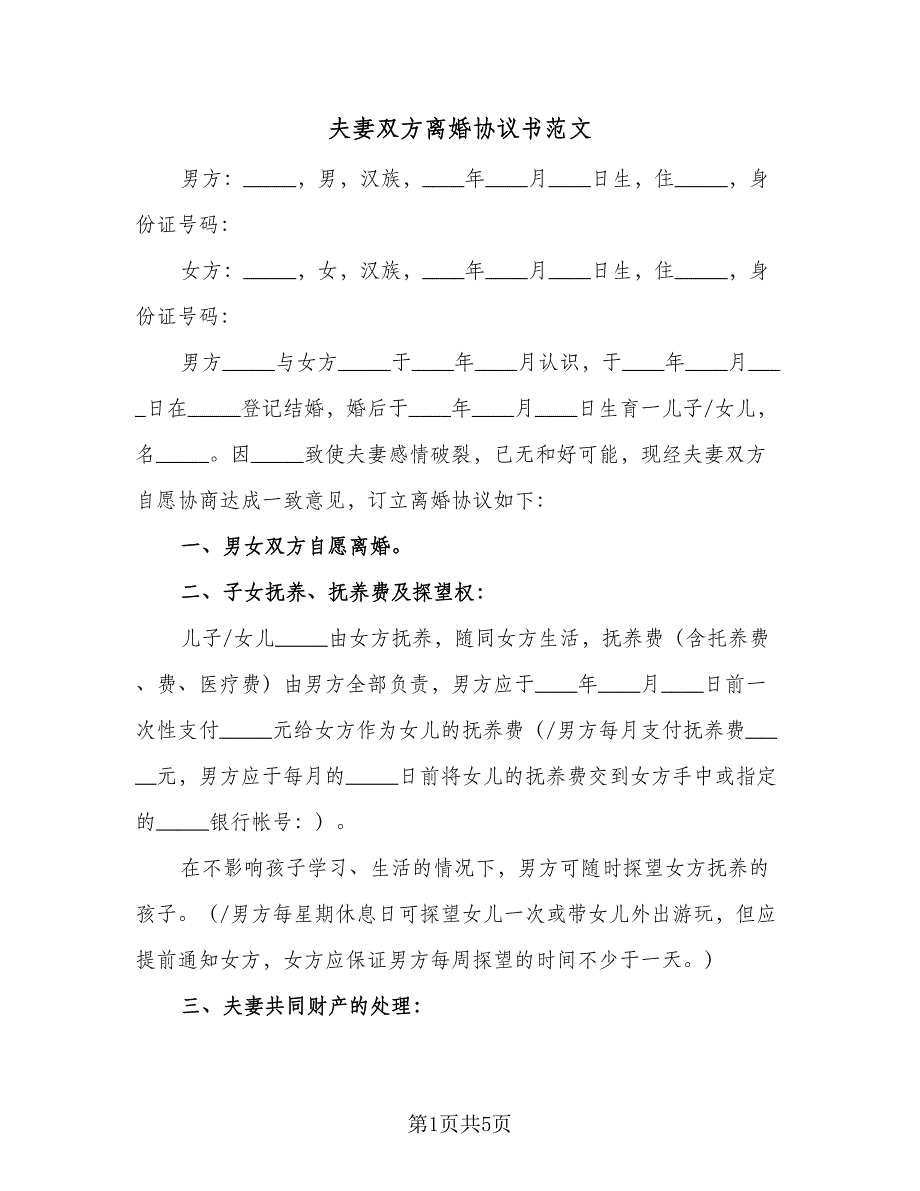 夫妻双方离婚协议书范文
男方：_____，男，汉族，____年____月____日生，住_____，身
份证号码：
女方：_____，女，汉族，____年____月____日生，住_____，身
份证号码：
男方_____与女方_____于____年____月认识，于____年____月___
_日在_____登记结婚，婚后于____年____月____日生育一儿子/女儿，
名_____。因_____致使夫妻感情破裂，已无和好可能，现经夫妻双方
自愿协商达成一致意见，订立离婚协议如下：
一、男女双方自愿离婚。
二、子女抚养、抚养费及探望权：
儿子/女儿_____由女方抚养，随同女方生活，抚养费（含托养费
、费、医疗费）由男方全部负责，男方应于____年____月____日前一
次性支付_____元给女方作为女儿的抚养费（/男方每月支付抚养费___
__元，男方应于每月的_____日前将女儿的抚养费交到女方手中或指定
的_____银行帐号：）。
在不影响孩子学习、生活的情况下，男方可随时探望女方抚养的
孩子。（/男方每星期休息日可探望女儿一次或带女儿外出游玩，但应
提前通知女方，女方应保证男方每周探望的时间不少于一天。）
三、夫妻共同财产的处理：
第1页共5页